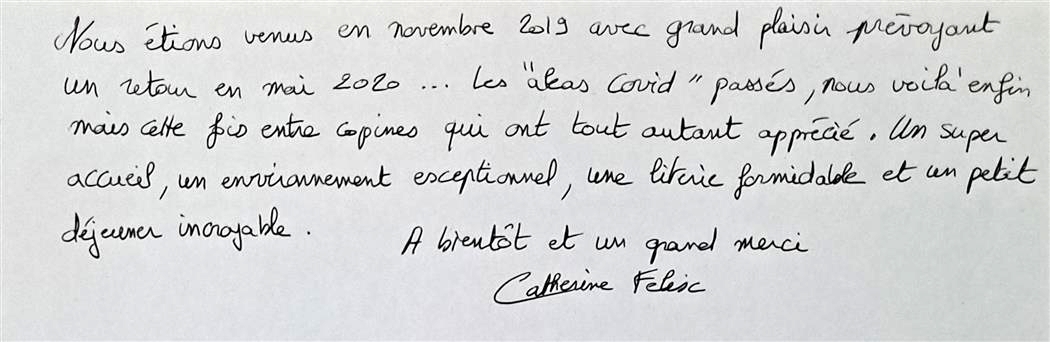 Nous étions venus en novembre 2019 avec grand plaisir prévoyant
un retour en mai 2020 ... Les "aléas Covid" passés, nous voilà enfin
mais cette fois entre copines qui ont tout autant apprécié. Un super
accueil, un environnement exceptionnel, une literie formidable et un petit
déjeuner incroyable.
A bientôt et un grand merci
Catherine